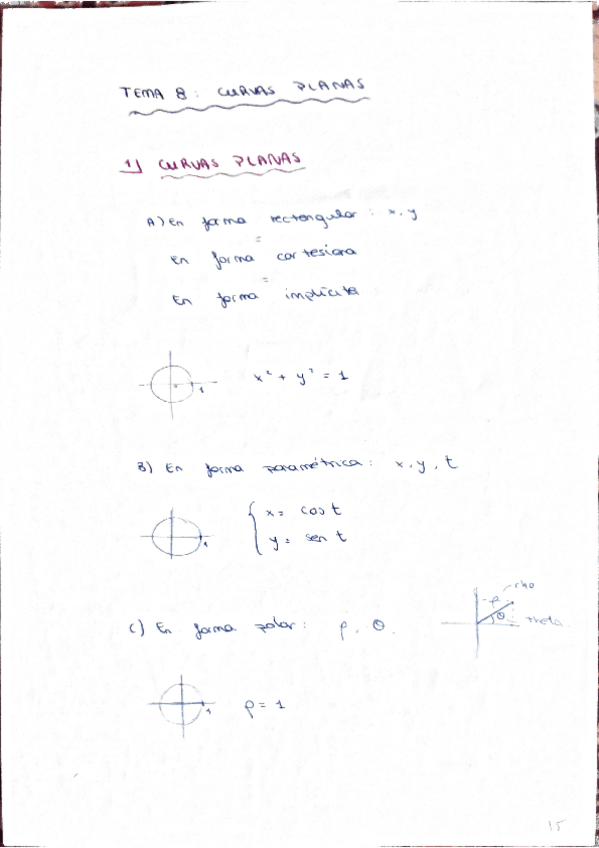 TEMA 8: CURVAS PLANAS
1) CURVAS PLANAS
A) En forma rectangular: x, y
=
en forma cartesiana
=
En forma implícita
1
x² + y² = 1
B) En forma paramétrica: x, y, t
1
x = cos t
y = sen t
rho
ρ
θ
theta
C) En forma polar: ρ, θ.
1
ρ = 1
15